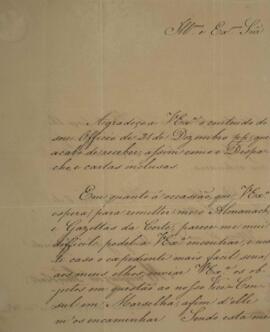 Illmo e Exmo Snr
Agradeço a VExa o contendo de
seu Officio de 21 de Dezembro pp, que
acabo de receber, assim como o Despa-
cho e cartas inclusas.
Em quanto á occasião, que VExa
espera, para remetter-me o Almanach
e Gazettas da Corte, parece-me mui
difficil poder VExa encontrar, e
caso o expediente mais facil seria,
aos meus olhos, enviar VExa os ob-
jectos em questão ao nosso Vice-Con-
sul em Marselha, afim d'elle
m'os encaminhar. Sendo esta